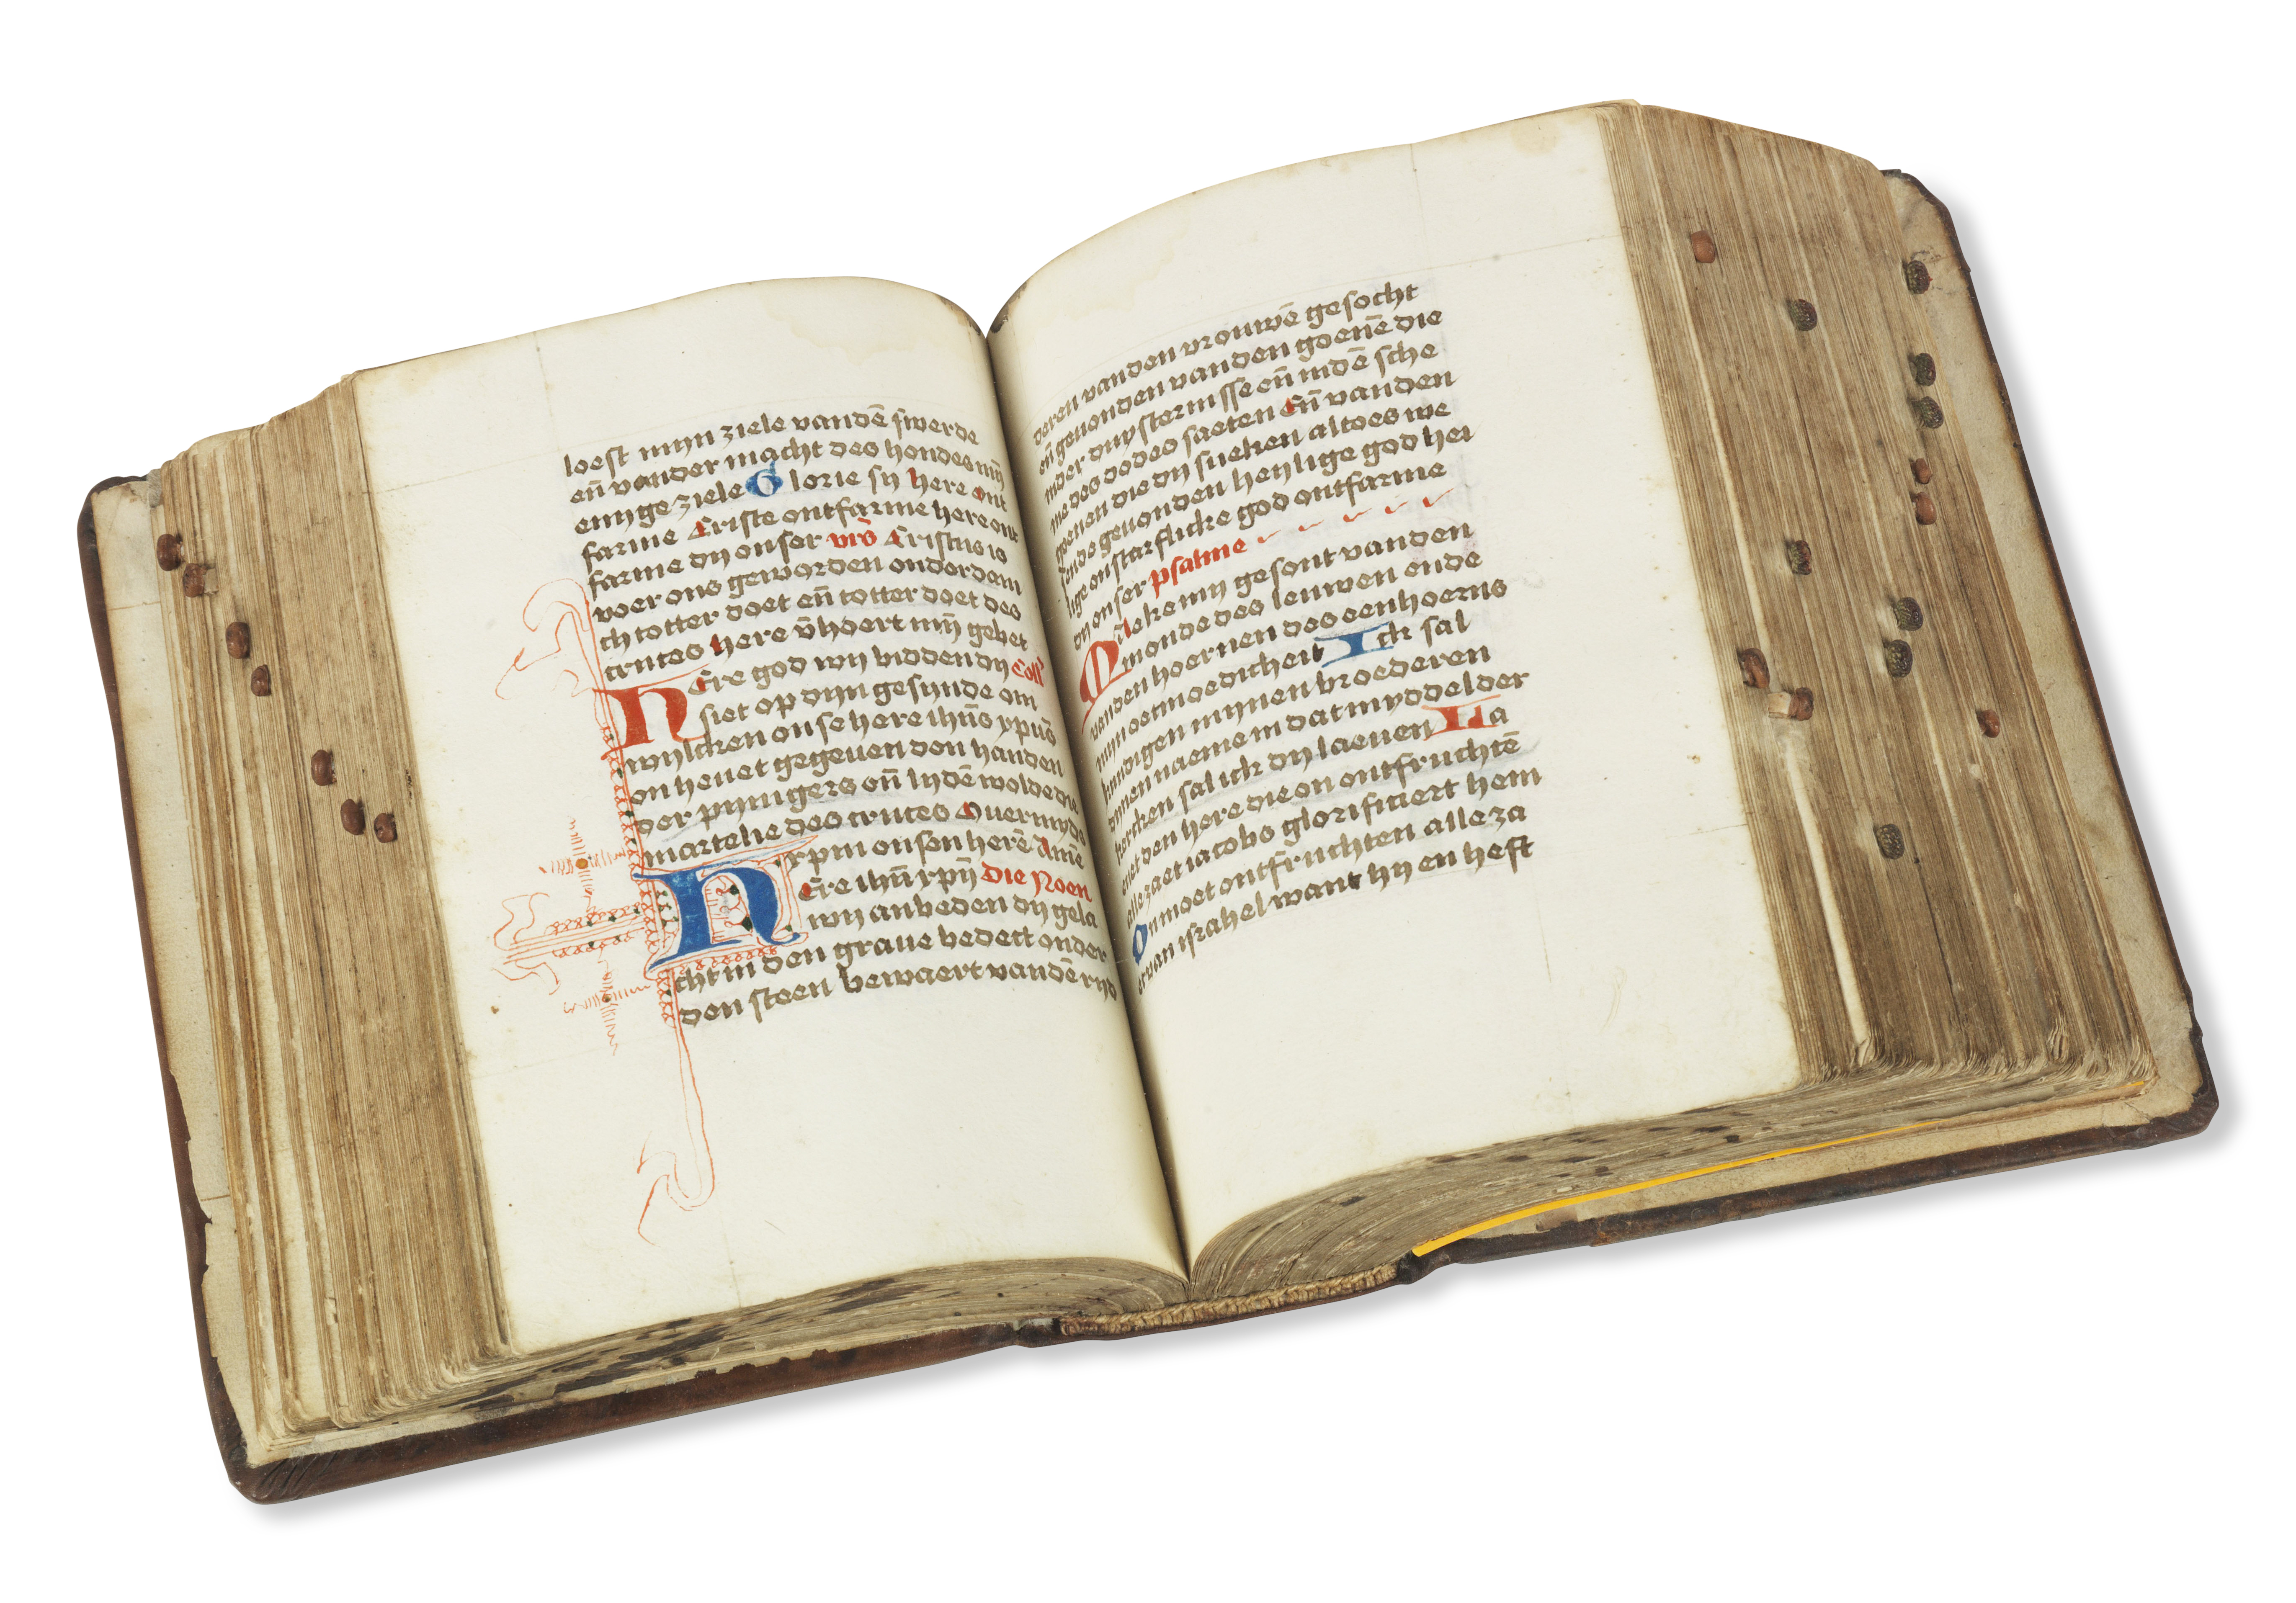 loest mijn ziele vandē swerde
eñ vander macht des hondes mÿ
enyge ziele Glorie sy here ont
farme Criste ontfarme here ont
farme dy onser vrō Cristus is
voer ons geworden onderdem
ch totter doet eñ totter doet des
cruces here v̄hoert mÿ gebet
Here god wy bidden dy Coll'
siet op dyn gesynde om
wylcken onse here ihūs xpūs
on heuet gegeuen den handen
der pynigers eñ lydē wolde die
martelie des cruces Ouermyds
xpm onsen herē Amē
Here ihū xpÿ Die Noen
wy anbeden dy gela
cht in den graue bedect onder
den steen bewaert vandē ryd
deren vanden vrouwē gesocht
eñ geuonden vanden goenē die
inder duysternisse eñ indē sche
me des dodes saeten Eñ vanden
goenen die dy sueken altoes we
sende geuonden heylige god hei
lige onstarflicke god ontfarme
dy onser psalme
Make my gesont vanden
monde des leuwen ende
vanden hoernen des eenhoerns
myn oetmoedicheit Ick sal
kundigen mynen broederen
dynen naeme in dat myddel der
kercken sal ick dy laeuen La
uet den here die on ontfruchtē
alle zaet iacobs glorificiert hem
On moet ontfruchten alle za
et van israhel want hy en heft